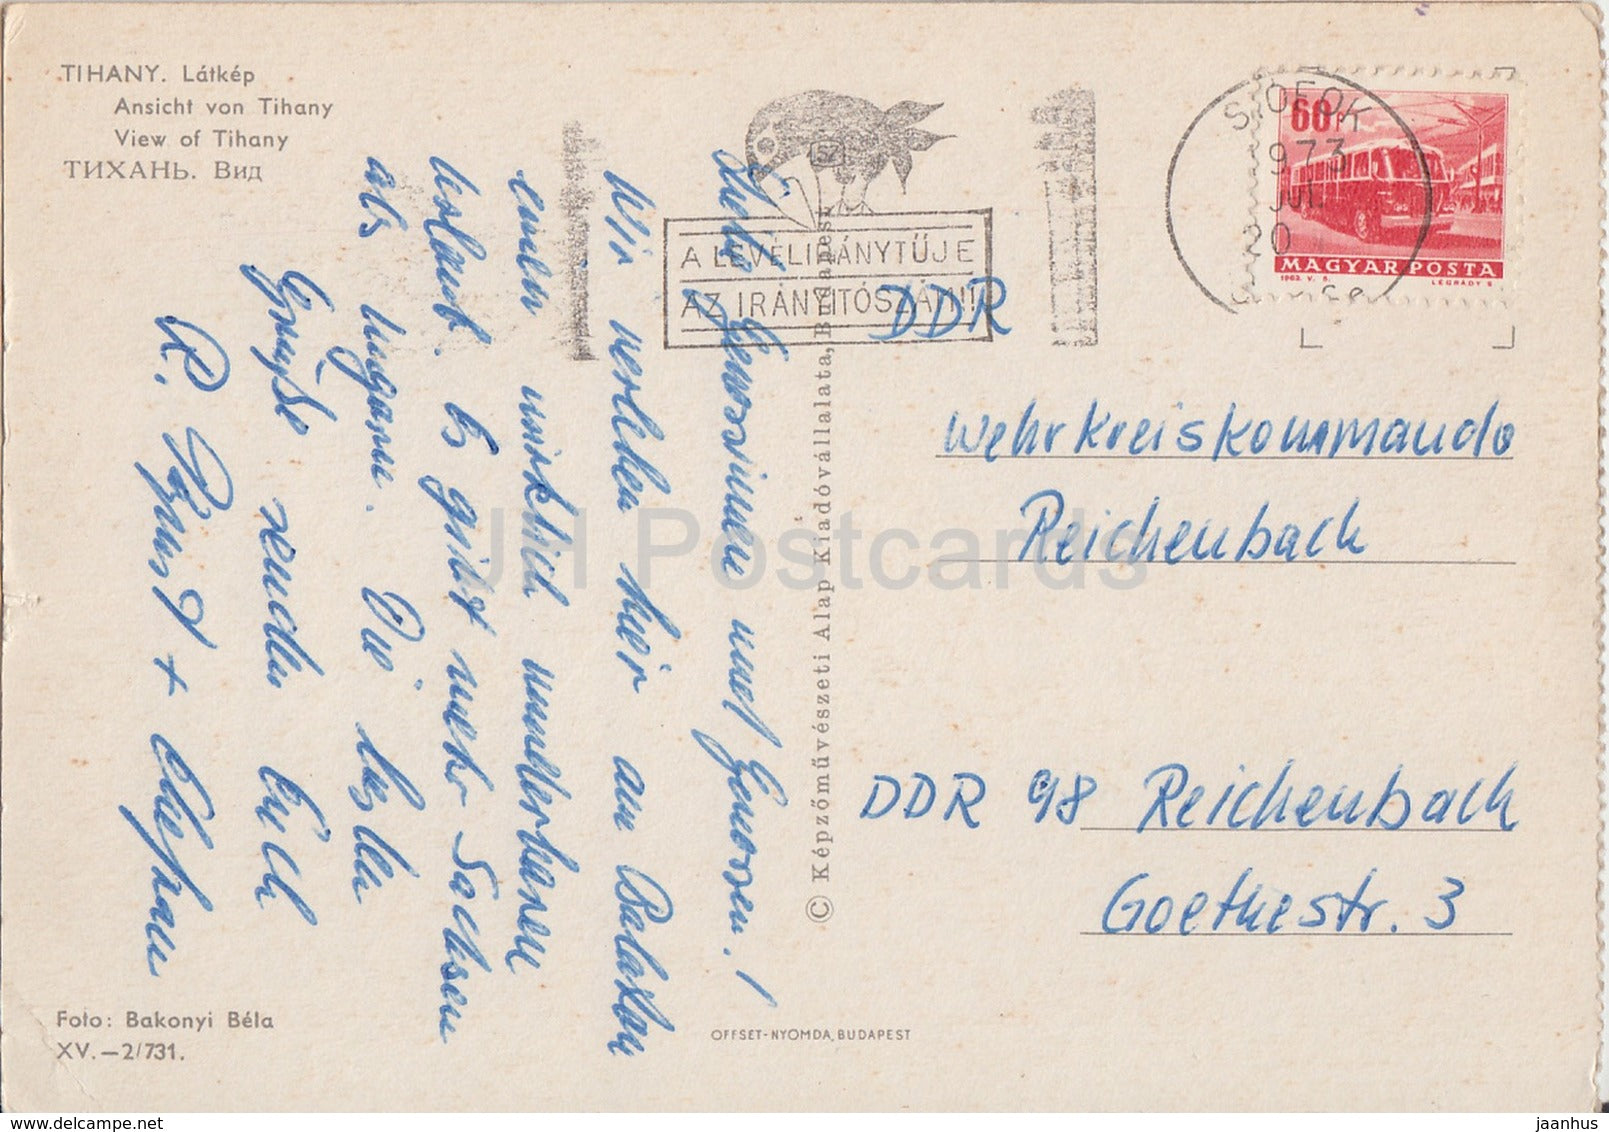 TIHANY. Látkép
Ansicht von Tihany
View of Tihany
ТИХАНЬ. Вид
57
A LEVÉLIRÁNYTŰJE
AZ IRÁNYÍTÓSZÁM!!
SIOFOK
973
JUL
60f
MAGYAR POSTA
1963. V. 5.
LÉGRÁDY S
Liebe Genossinnen und Genossen!
Wir verleben hier am Balaton
einen wirklich wunderbaren
Urlaub. Es gibt mehr Sachsen
als Ungarn. Die besten
Grüße senden Euch
R.
DDR
Wehrkreiskommando
Reichenbach
DDR 98 Reichenbach
Goethestr. 3
© Képzőművészeti Alap Kiadóvállalata, Budapest
Foto: Bakonyi Béla
XV.—2/731.
OFFSET-NYOMDA, BUDAPEST
JH Postcards
www.delcampe.net
jaanhus